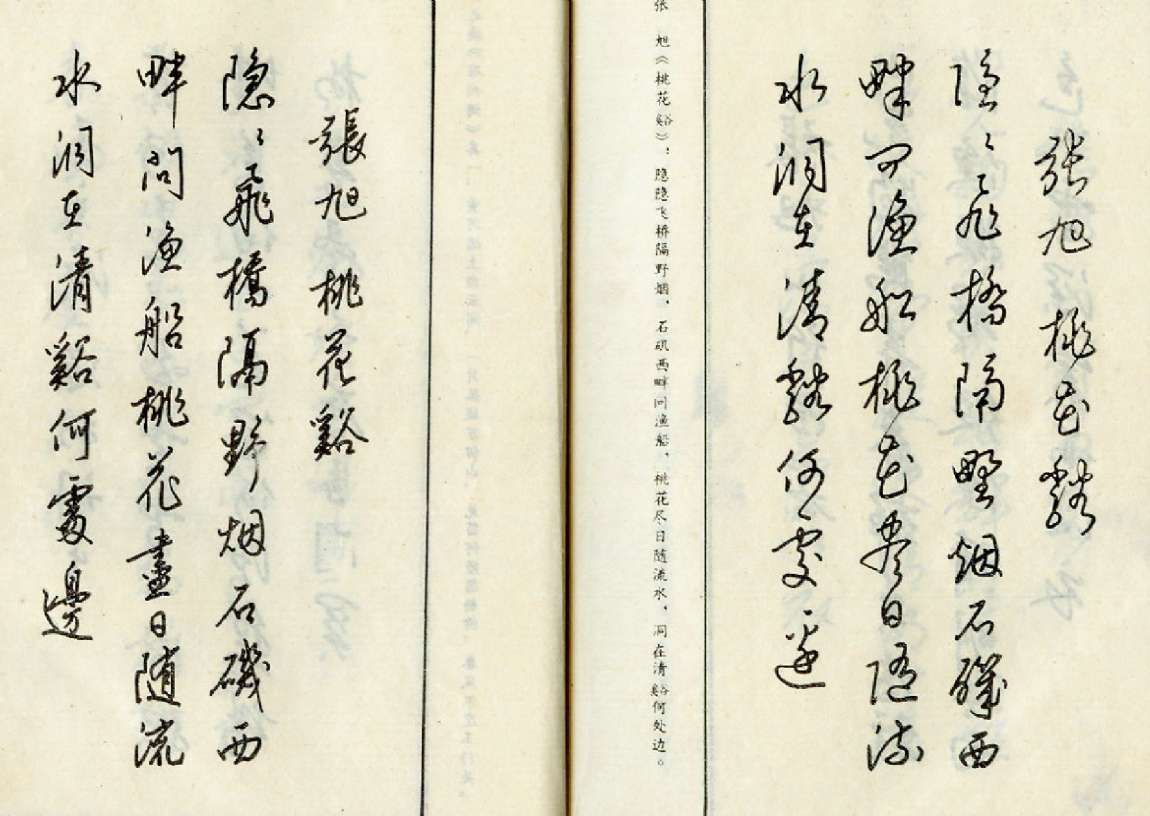 張旭 桃花谿
隐〻飛橋隔野烟石磯西
畔问渔船桃花尽日随流
水洞在清谿何處邊
张 旭《桃花谿》:隐隐飞桥隔野烟,石矶西畔问渔船,桃花尽日随流水,洞在清谿何处边。
張旭 桃花谿
隐〻飛橋隔野烟石磯西
畔問渔船桃花盡日随流
水洞在清谿何處邊